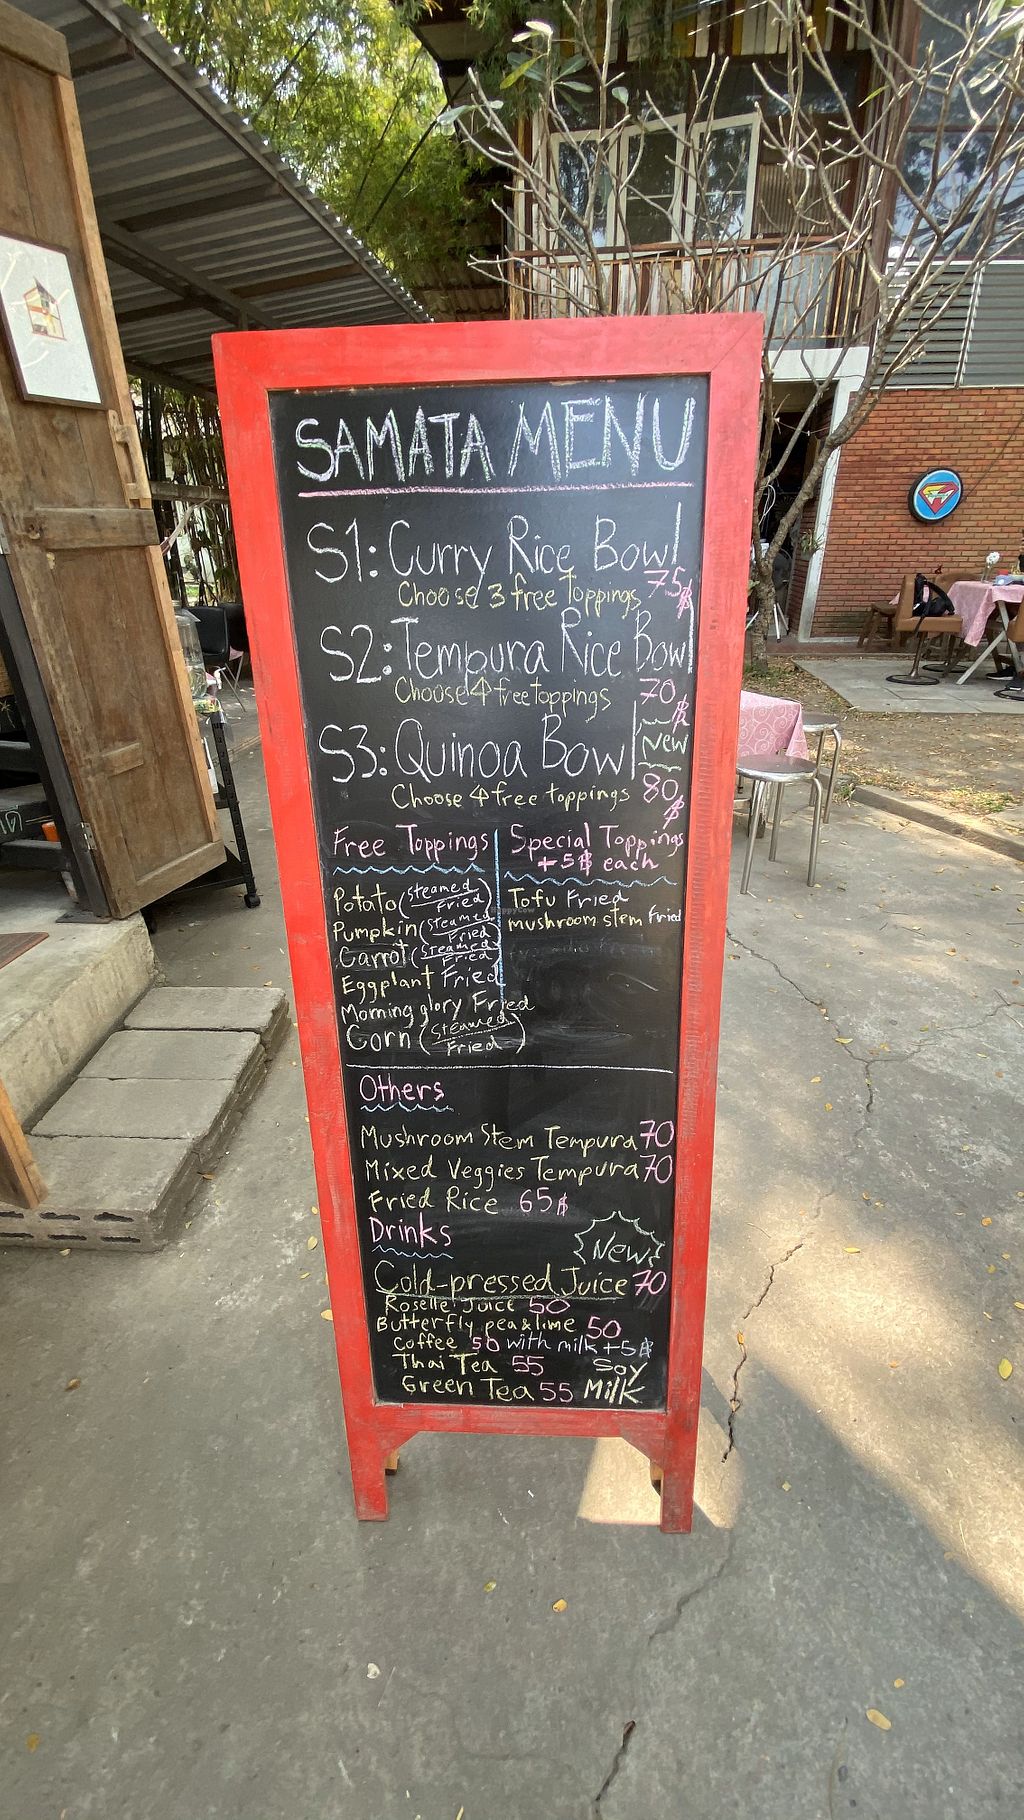 SAMATA MENU
S1: Curry Rice Bowl
Choose 3 free toppings 75฿
S2: Tempura Rice Bowl
Choose 4 free toppings 70฿
S3: Quinoa Bowl New
Choose 4 free toppings 80฿
Free Toppings
Potato (steamed/Fried)
Pumpkin (steamed/Fried)
Carrot (steamed/Fried)
Eggplant Fried
Morning glory Fried
Corn (steamed/Fried)
Special Toppings
+5฿ each
Tofu Fried
mushroom stem Fried
Others
Mushroom Stem Tempura 70
Mixed Veggies Tempura 70
Fried Rice 65฿
Drinks
New
Cold-pressed Juice 70
Roselle Juice 50
Butterfly pea & lime 50
Coffee 50 with milk +5฿
Thai Tea 55 Soy
Green Tea 55 Milk
HappyCow